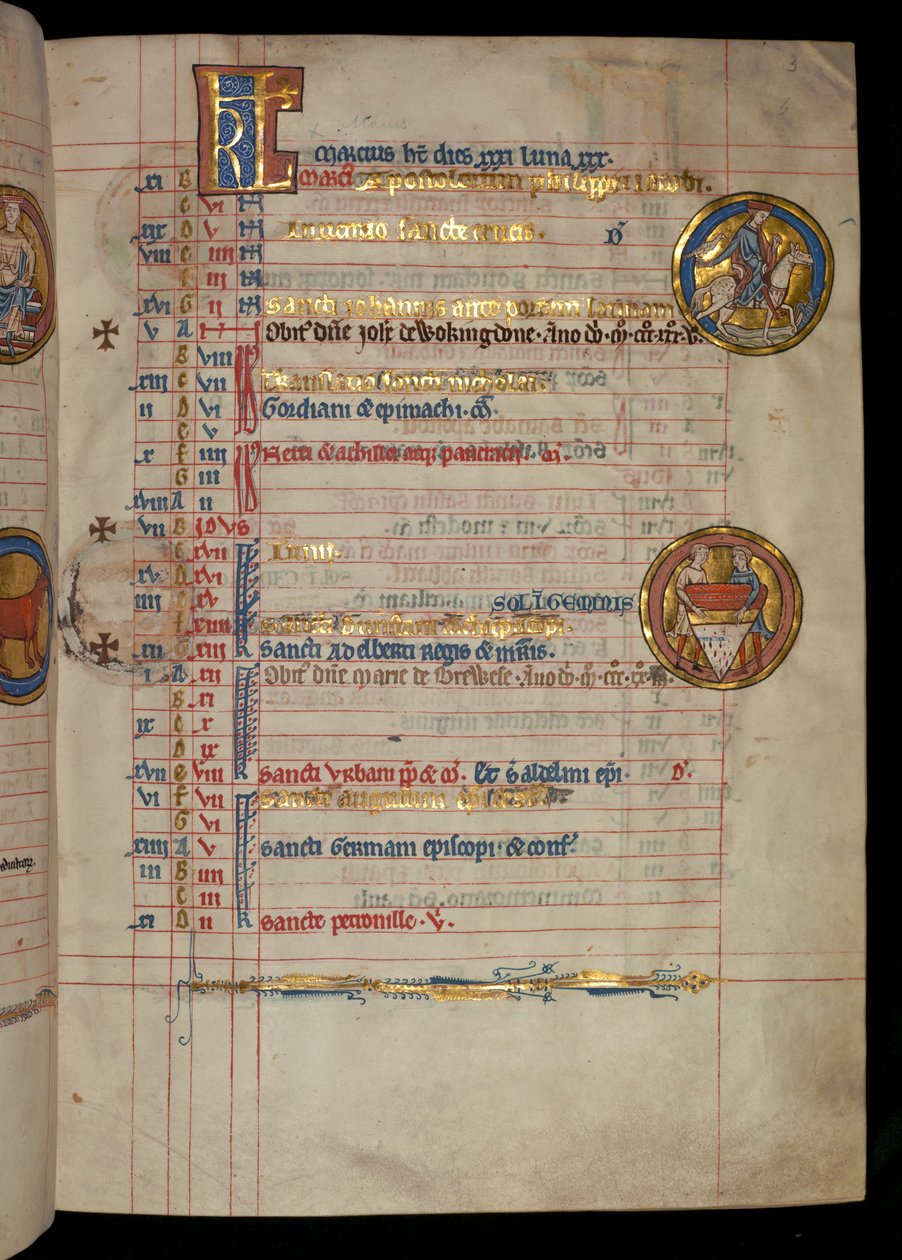 3
KL marcius ht dies xxxi luna xxx.
xi B marcii Apostolorum philippi iacobi.
c vi N
xix D v N Inuencio sancte crucis. D
viii e iiii N
f iii N
xvi G ii N Sancti iohannis ante portam latinam
v A Obit' dñe de Wokingdone. Ano
B viii
xiii c vii Translacio sancti nicholai.
ii D vi Gordiani & epimachi.
e v
x f iiii Nerei & achillei atq; pancracii.
G iii
xviii A ii
vii B IDVS
c xvii Iunii.
xv D xvi
iiii e xv SOL Ī GEMINIS
f xiiii Sancti Dunstani
xii G xiii K Sancti Adelberti Regis & mris.
i A xii Obit' dñe Marie de Brewese. Ano
B xi
ix c x
D ix
xvii e viii K Sancti Vrbani pp & m. Et s aldelmi epi. D.
vi f vii Sancti augustini
G vi
xiiii A v Sancti Germani episcopi & conf.
iii B iiii
c iii
xi D ii K Sancte petronille. V.